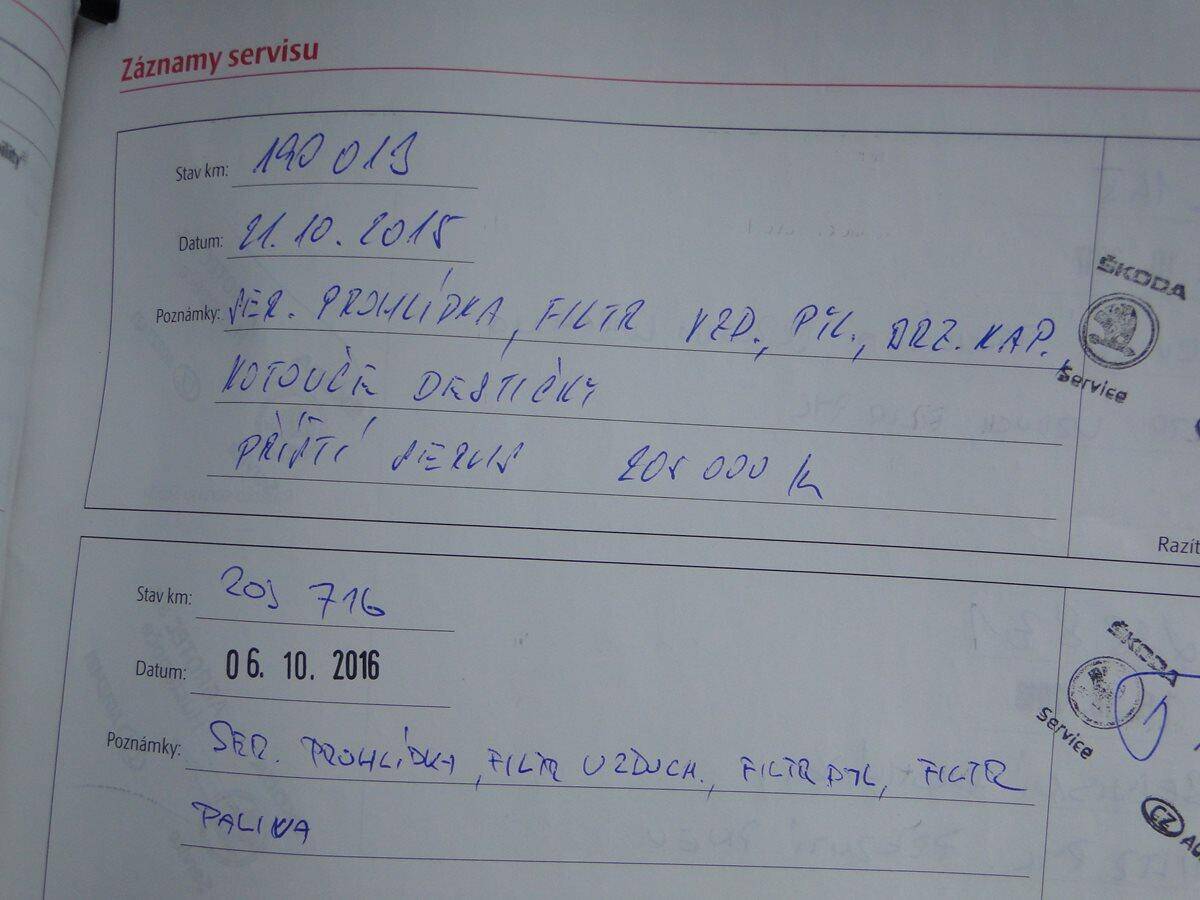 Záznamy servisu
Stav km: 190 019
Datum: 21.10.2015
Poznámky: SER. PROHLÍDKA, FILTR VZD., PYL., BRZ. KAP.,
KOTOUČE DESTIČKY
PŘÍŠTÍ SERVIS 205 000 k
ŠKODA
Service
Razít
Stav km: 205 716
Datum: 06. 10. 2016
Poznámky: SER. PROHLÍDKA, FILTR VZDUCH., FILTR PYL, FILTR
PALIVA
ŠKODA
Service
CZ